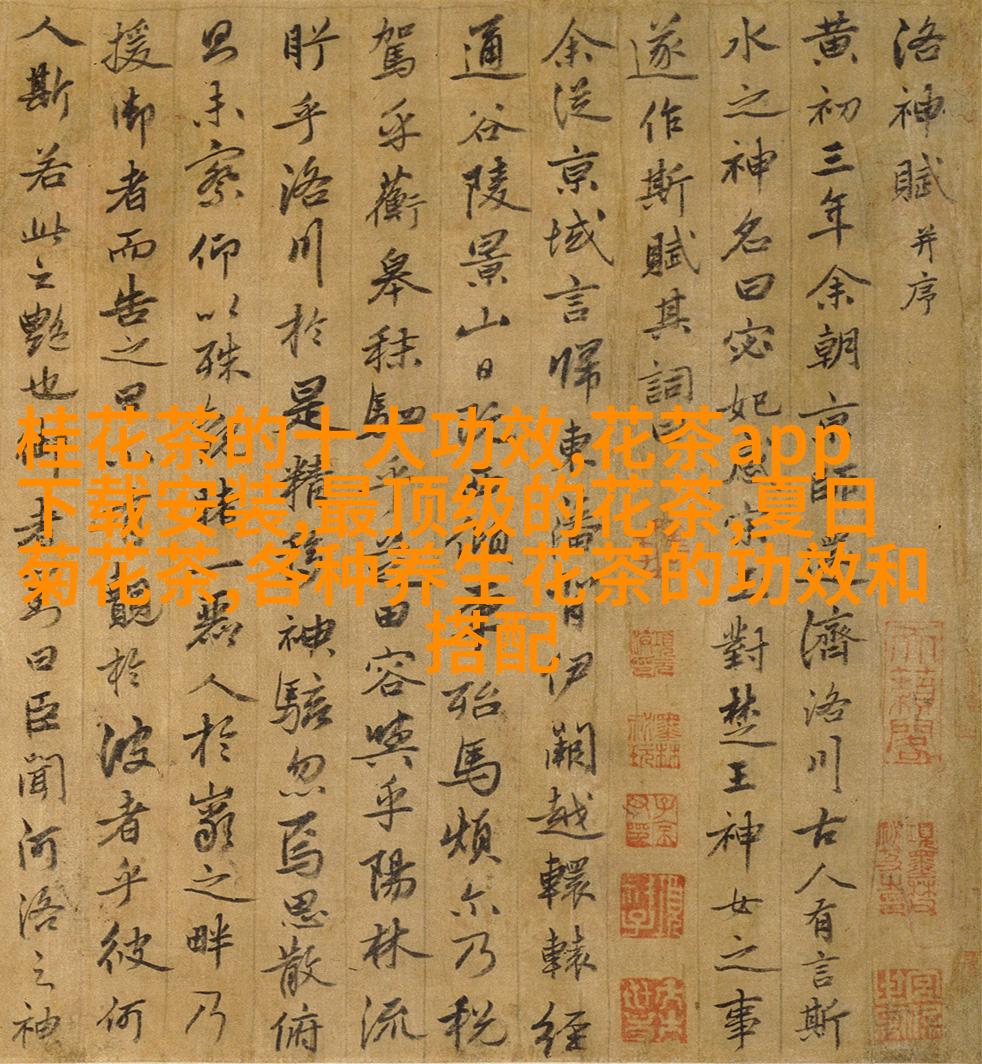 洛神賦 并序
黄初三年余朝京師還濟洛川古人有言斯
水之神名曰宓妃感宋玉對楚王神女之事
遂作斯賦其詞曰
余從京域言歸東藩背伊闕越轘轅經
通谷陵景山日既西傾車殆馬煩尓乃税
駕乎蘅皋秣駟乎芝田容與乎陽林流
眄乎洛川於是精移神駭忽焉思散俯
則未察仰以殊觀睹一麗人於巖之畔乃
援御者而告之曰尓有覿於彼者乎彼何
人斯若此之艷也御者對曰臣聞河洛之神
桂花茶的十大功效,花茶app
下载安装,最顶级的花茶,夏日
菊花茶,各种养生花茶的功效和
搭配